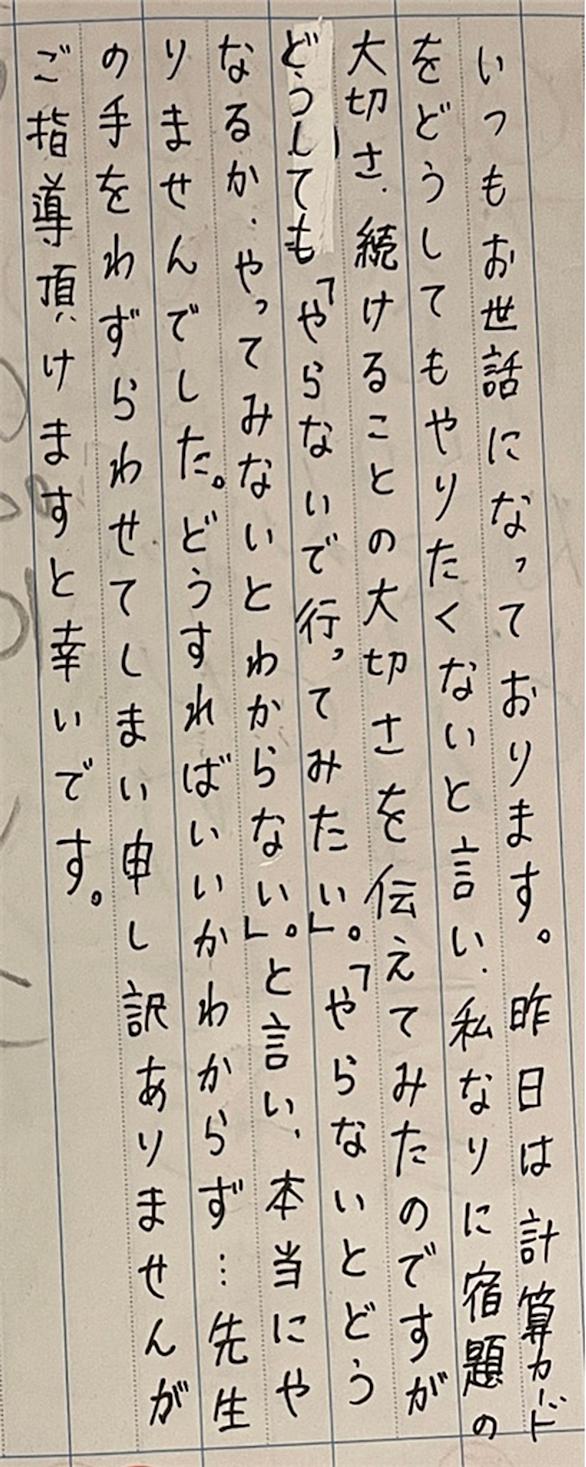 いつもお世話になっております。昨日は計算カード
をどうしてもやりたくないと言い、私なりに宿題の
大切さ、続けることの大切さを伝えてみたのですが
どうしても「やらないで行ってみたい」。「やらないとどう
なるか、やってみないとわからない」。と言い、本当にや
りませんでした。どうすればいいかわからず…先生
の手をわずらわせてしまい申し訳ありませんが
ご指導頂けますと幸いです。